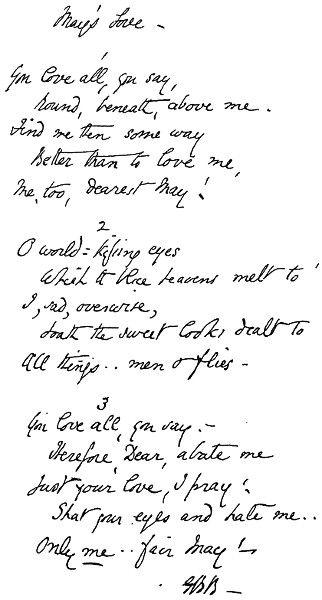 May's Love –
1
You love all, you say,
Round, beneath, above me.
Find me then some way
Better than to love me,
Me, too, dearest May!
2
O world-kissing eyes
Which the blue heavens melt to!
I, sad, overwise,
Loathe the sweet looks dealt to
All things.. men & flies –
3
You love all, you say. –
Therefore, Dear, abate me
Just your love, I pray!.
Shut your eyes and hate me..
Only me.. fair May! –
EBB –